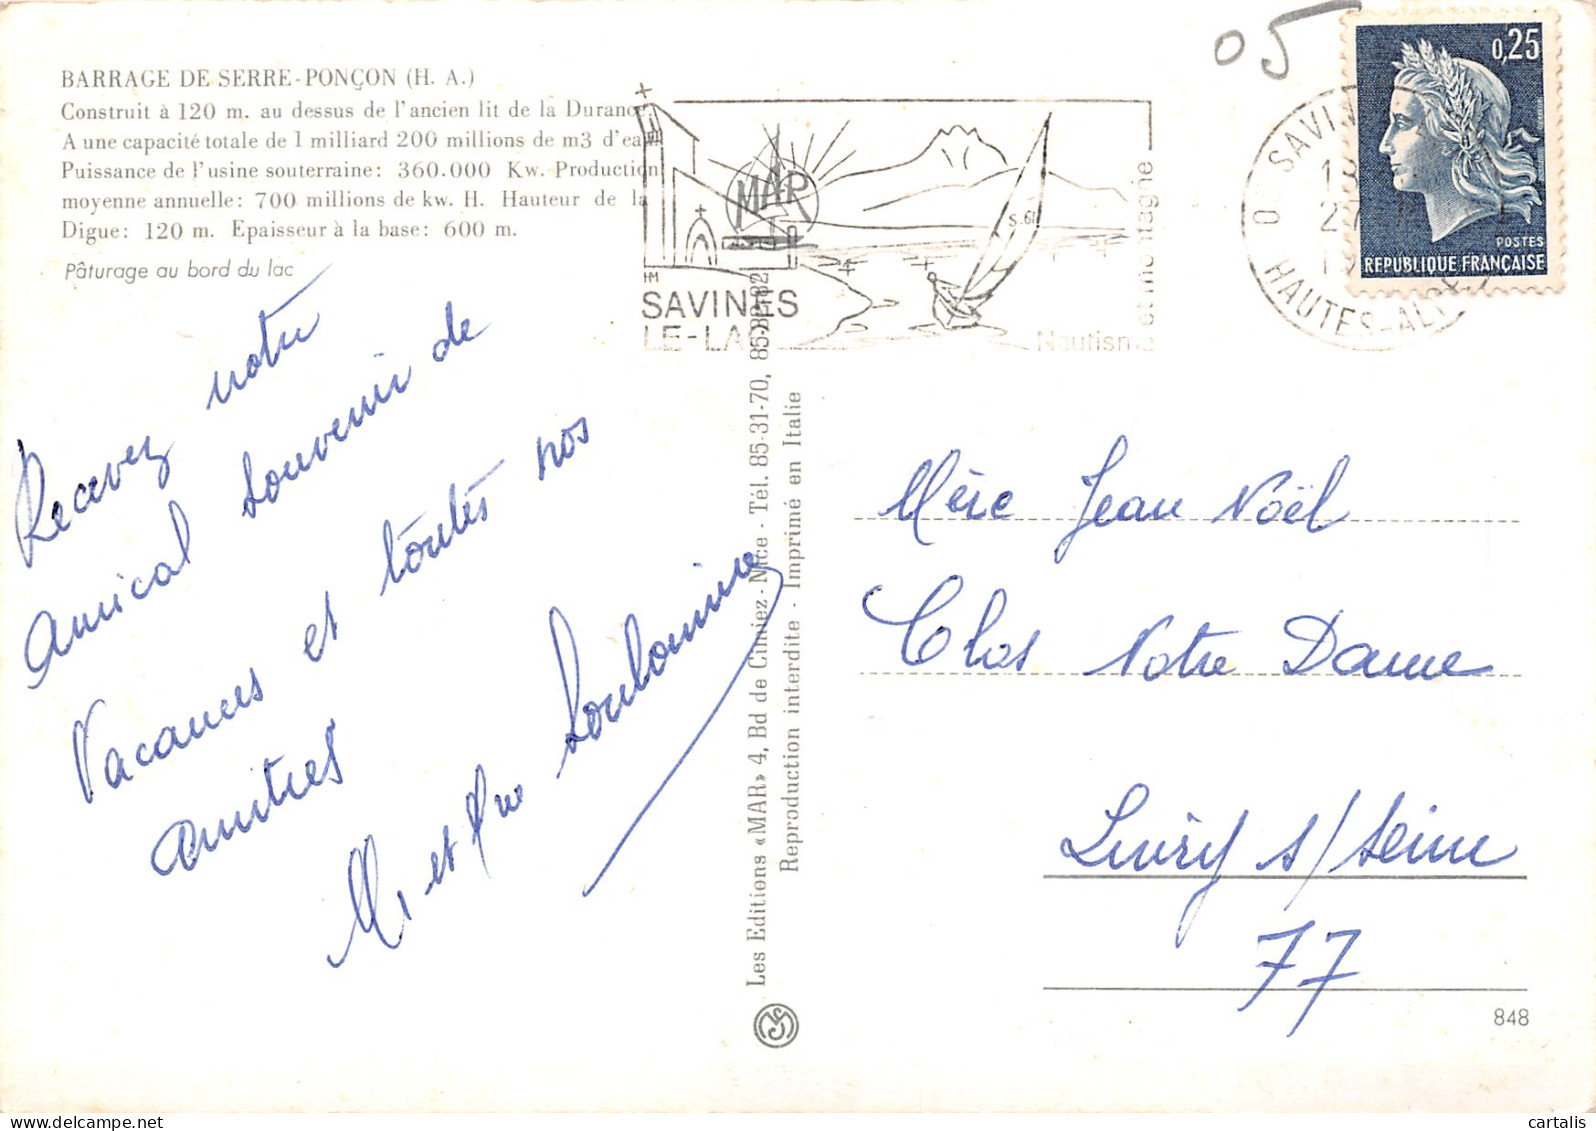 05
BARRAGE DE SERRE-PONÇON (H. A.)
Construit à 120 m. au dessus de l'ancien lit de la Durance.
A une capacité totale de 1 milliard 200 millions de m3 d'eau
Puissance de l'usine souterraine: 360.000 Kw. Production
moyenne annuelle: 700 millions de kw. H. Hauteur de la
Digue: 120 m. Epaisseur à la base: 600 m.
Pâturage au bord du lac
MAR
S.61
HM
SAVINES
LE-LAC
Nautisme et montagne
HAUTES-ALPES
0,25
POSTES
REPUBLIQUE FRANÇAISE
Recevez notre
amical souvenir de
Vacances et toutes nos
amitiés
Mr et Mme
Les Editions «MAR» 4, Bd de Cimiez - Nice - Tél. 85-31-70,
Reproduction interdite - Imprimé en Italie
Mère Jean Noël
Clos Notre Dame
Livry s/ Seine
77
848
cartalis